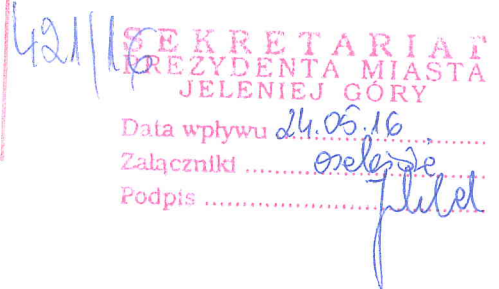 421/16
SEKRETARIAT
PREZYDENTA MIASTA
JELENIEJ GÓRY
Data wpływu 24.05.16
Załączniki ........ osobiście
Podpis ........